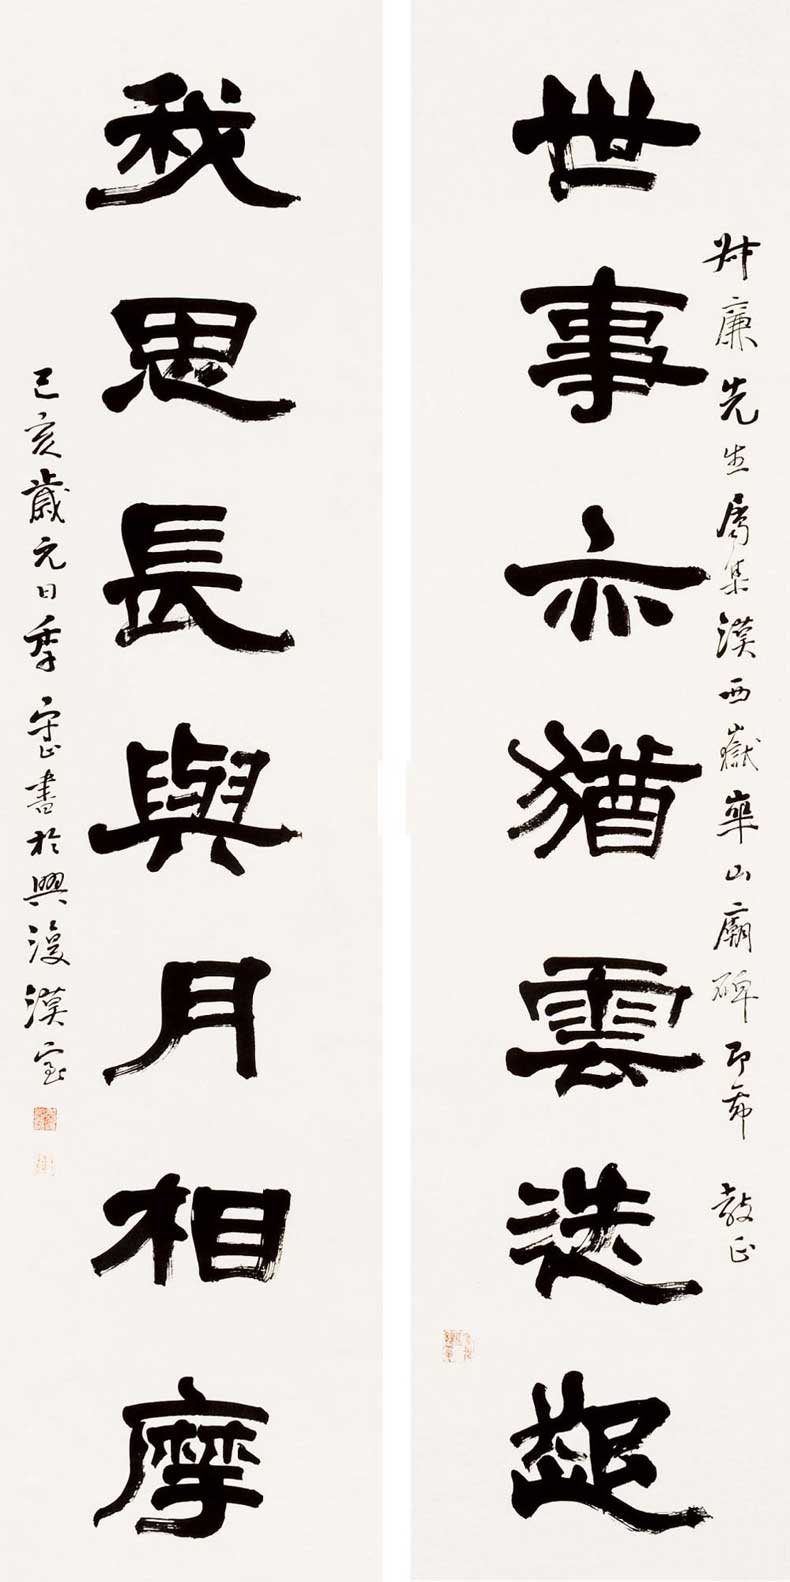 世事亦猶雲迭起
叔廉先生屬集漢西嶽華山廟碑即希
教正
我思長與月相摩
己亥歲元日季守正書於興漢室